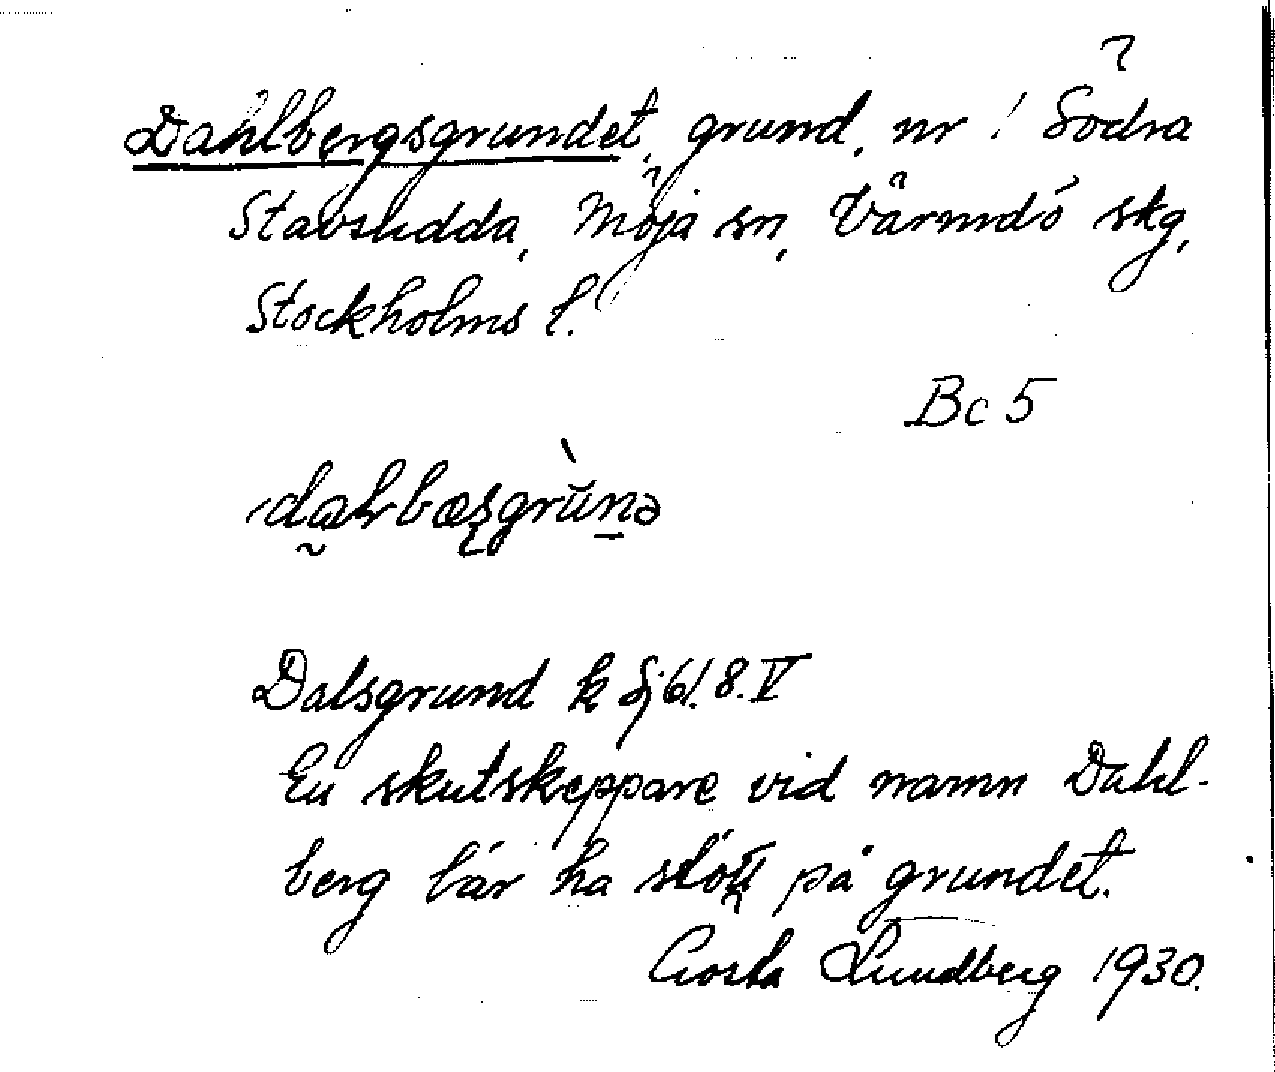 Dahlbergsgrundet, grund, nr 1 Södra
Stavsudda, Möja sn, Värmdö skg,
Stockholms l.
Bc 5
Dalsgrund k Sj 61. 8. V
En skutskeppare vid namn Dahl-
berg lär ha stött på grundet.
Gösta Lundberg 1930.